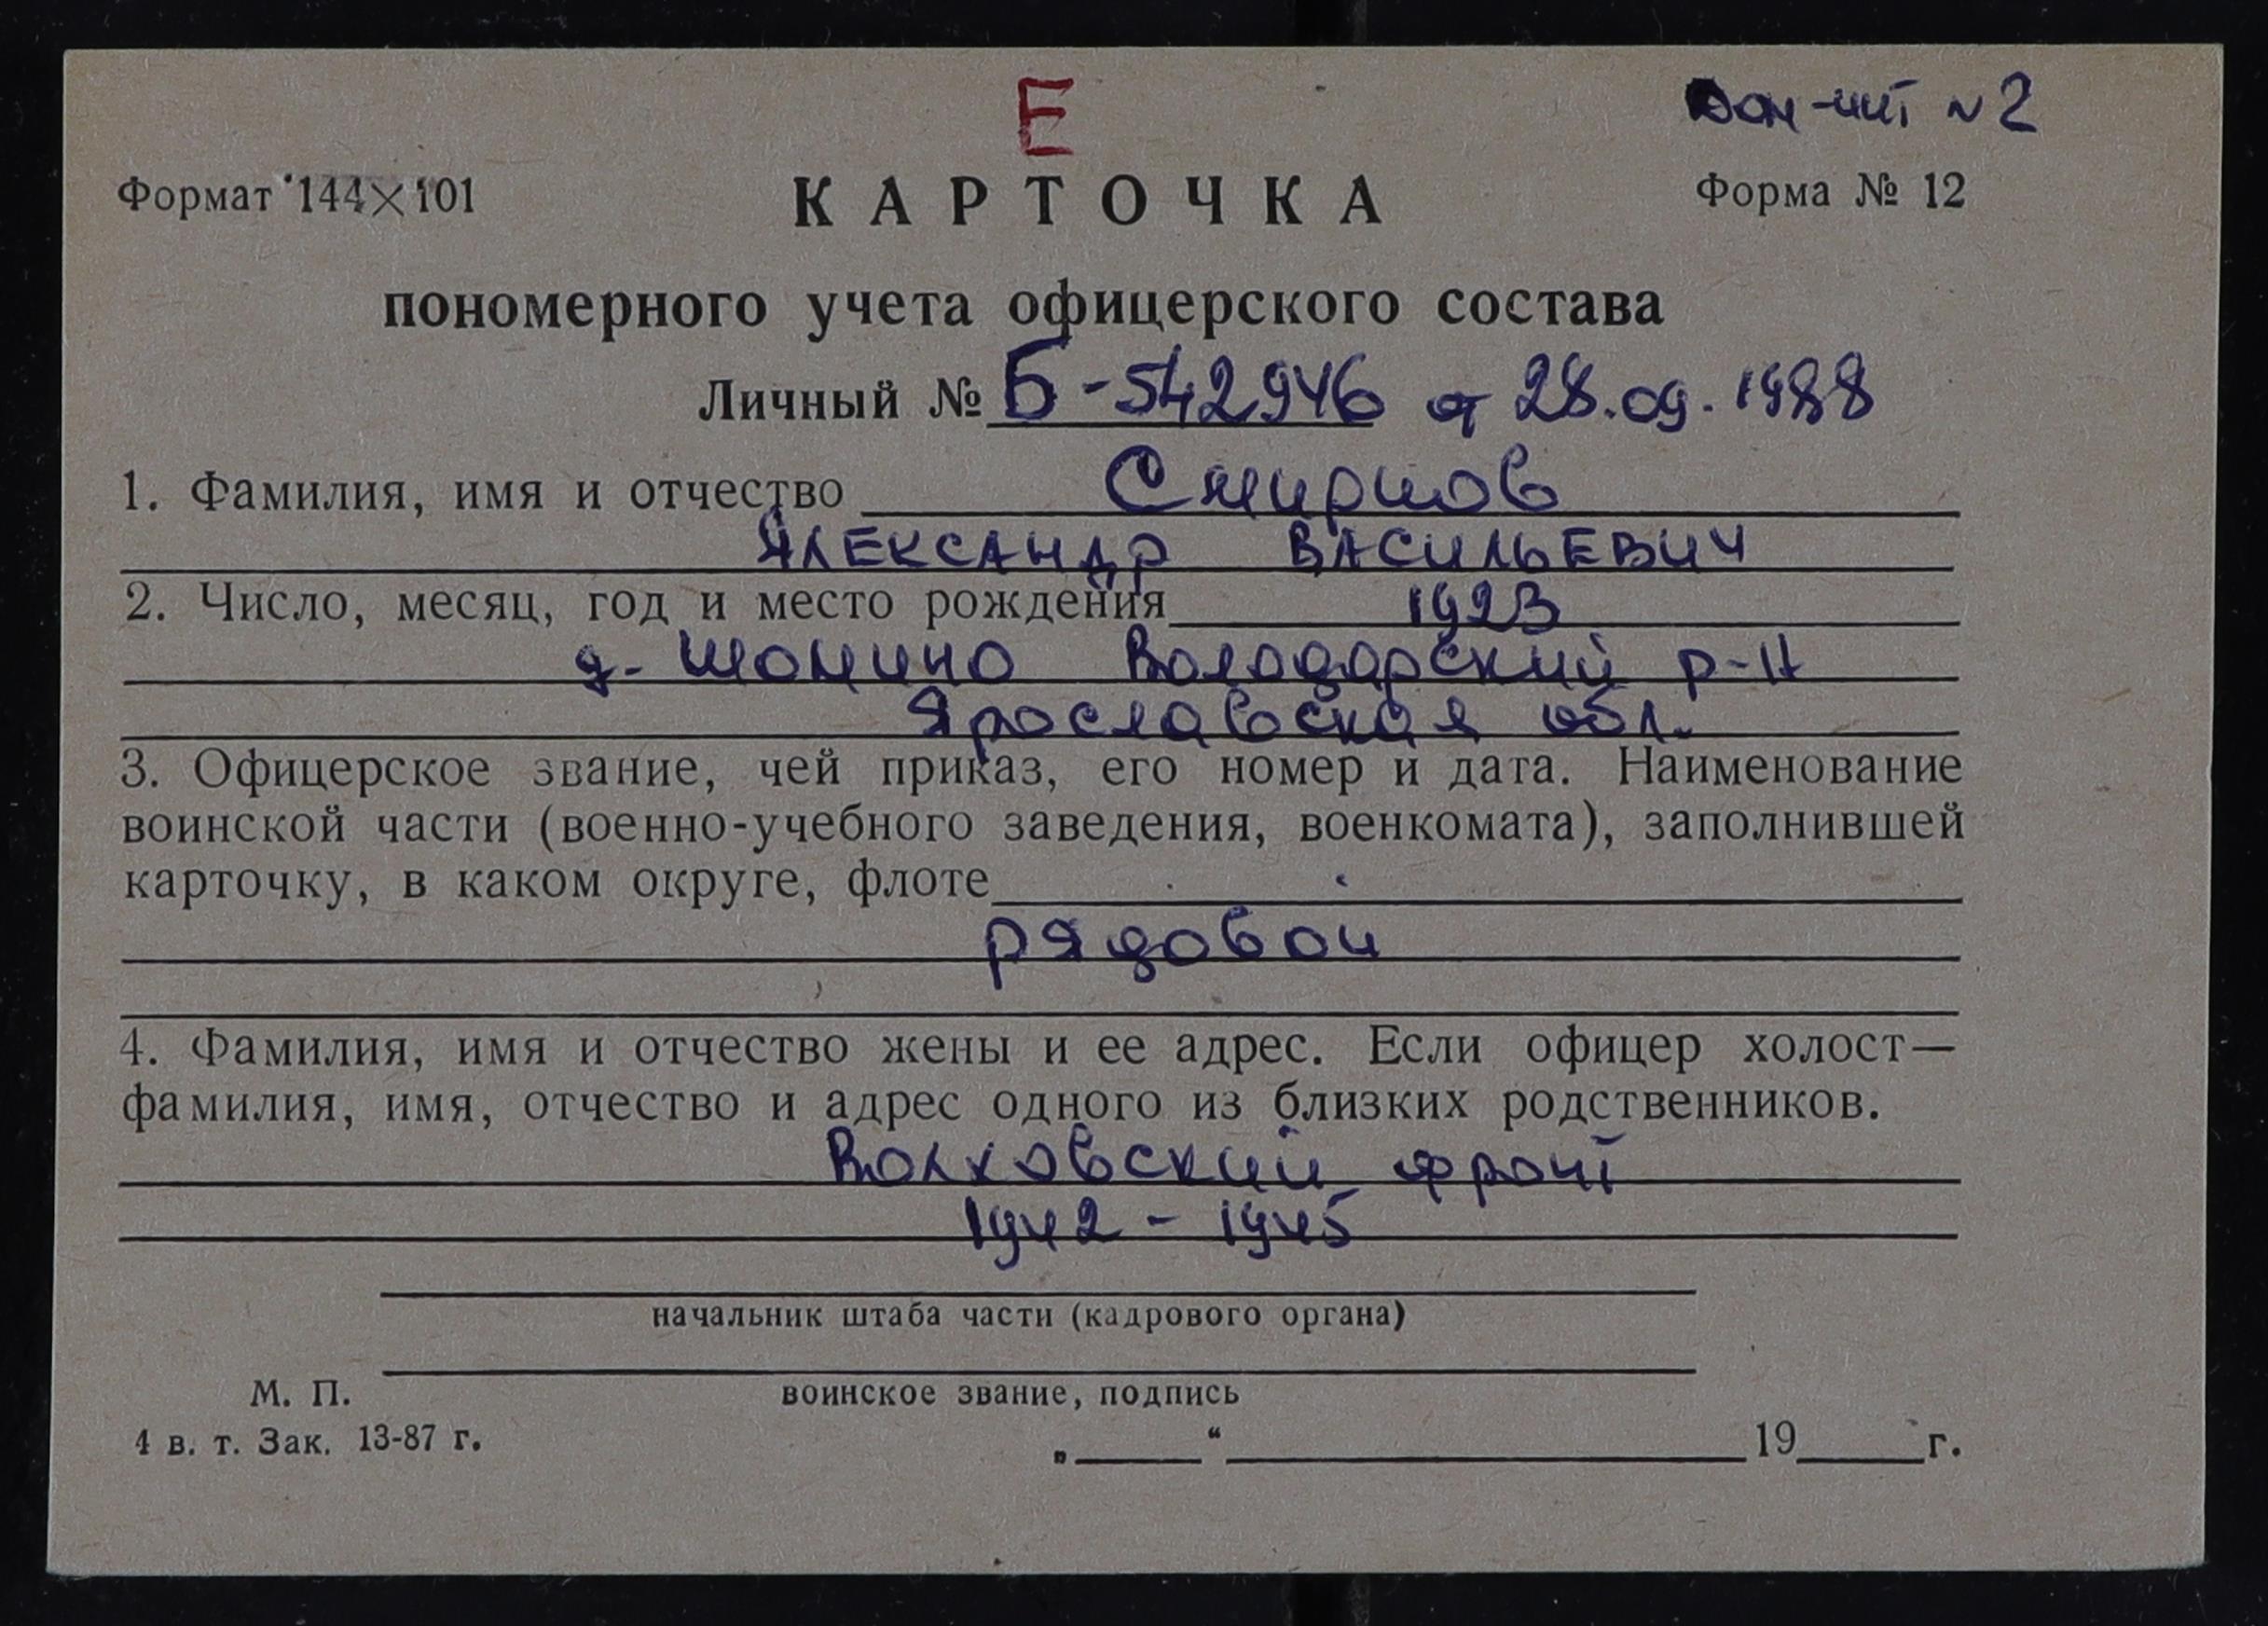 Е
Дом-инт N 2
Формат 144×101
КАРТОЧКА
Форма № 12
пономерного учета офицерского состава
Личный № Б-542946 от 28.09.1988
1. Фамилия, имя и отчество Смирнов
АЛЕКСАНДР ВАСИЛЬЕВИЧ
2. Число, месяц, год и место рождения 1923
д. Шомино Володарский р-н
Ярославская обл.
3. Офицерское звание, чей приказ, его номер и дата. Наименование
воинской части (военно-учебного заведения, военкомата), заполнившей
карточку, в каком округе, флоте
рядовой
4. Фамилия, имя и отчество жены и ее адрес. Если офицер холост—
фамилия, имя, отчество и адрес одного из близких родственников.
Волховский фронт
1942 - 1945
начальник штаба части (кадрового органа)
М. П.
воинское звание, подпись
4 в. т. Зак. 13-87 г.
„____“ ________ 19____г.